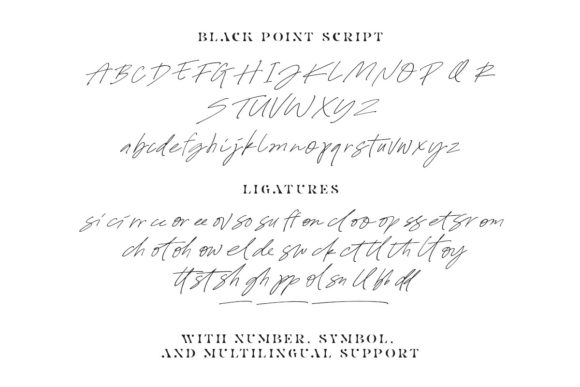 BLACK POINT SCRIPT
ABCDEFGHIJKLMNOPQR
STUVWXYZ
abcdefghijklmnopqrstuvwxyz
LIGATURES
si ci ri rr cc or ee ov so su ff on cl oo op ss et sr om
ch ot oh ow el de sw ck ct tl th lt oy
tt st sh gh pp ol sn ll bb dd
WITH NUMBER, SYMBOL,
AND MULTILINGUAL SUPPORT